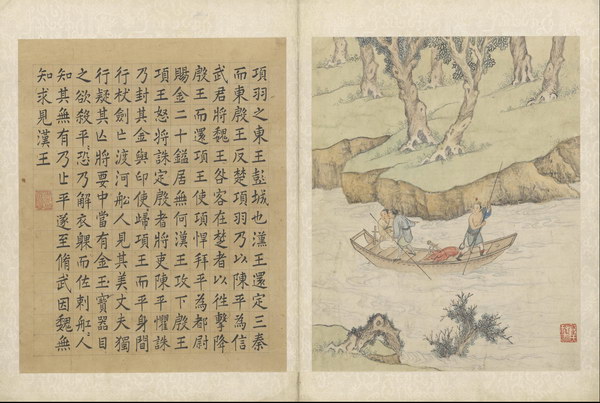 項羽之東王彭城也漢王還定三秦
而東殷王反楚項羽乃以陳平為信
武君將魏王咎客在楚者以徃擊降
殷王而還項王使項悍拜平為都尉
賜金二十鎰居無何漢王攻下殷王
項王怒將誅定殷者將吏陳平懼誅
乃封其金與印使歸項王而平身間
行杖劍亡渡河船人見其美丈夫獨
行疑其亡將要中當有金玉寶器目
之欲殺平平恐乃解衣躶而佐刺船船人
知其無有乃止平遂至脩武因魏無
知求見漢王